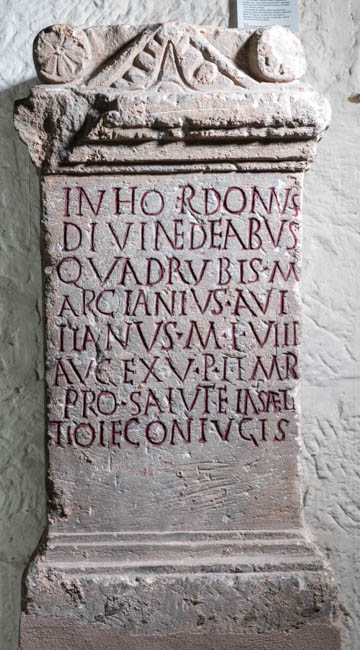 IN HO·R DOMVS
DIVINE DEABVS
QVADRVBIS·M
ARCIANIVS·AVI
TIANVS·M·L·VIII
AVG EX V·P·
PRO·SALVTE
CONIVGIS